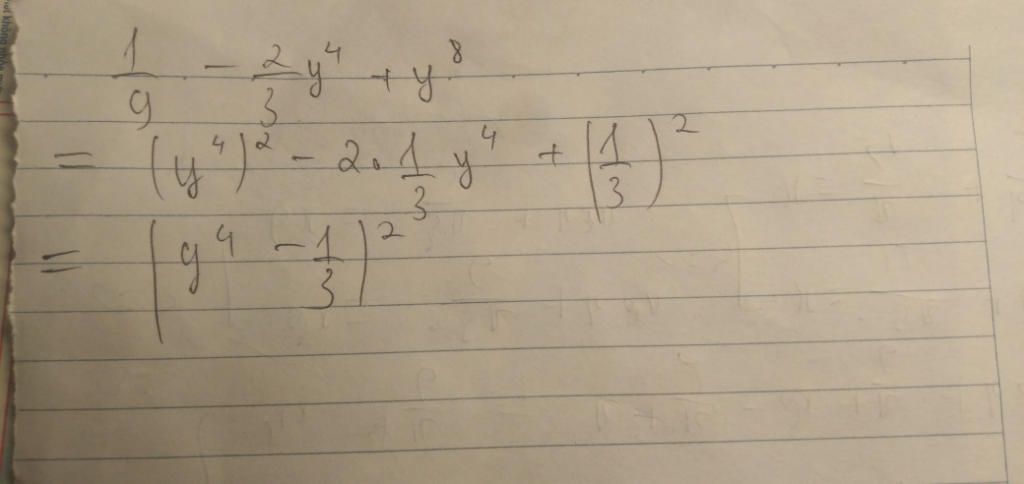 1/9 - 2/3 y⁴ + y⁸
= (y⁴)² - 2 · 1/3 y⁴ + (1/3)²
= (y⁴ - 1/3)²